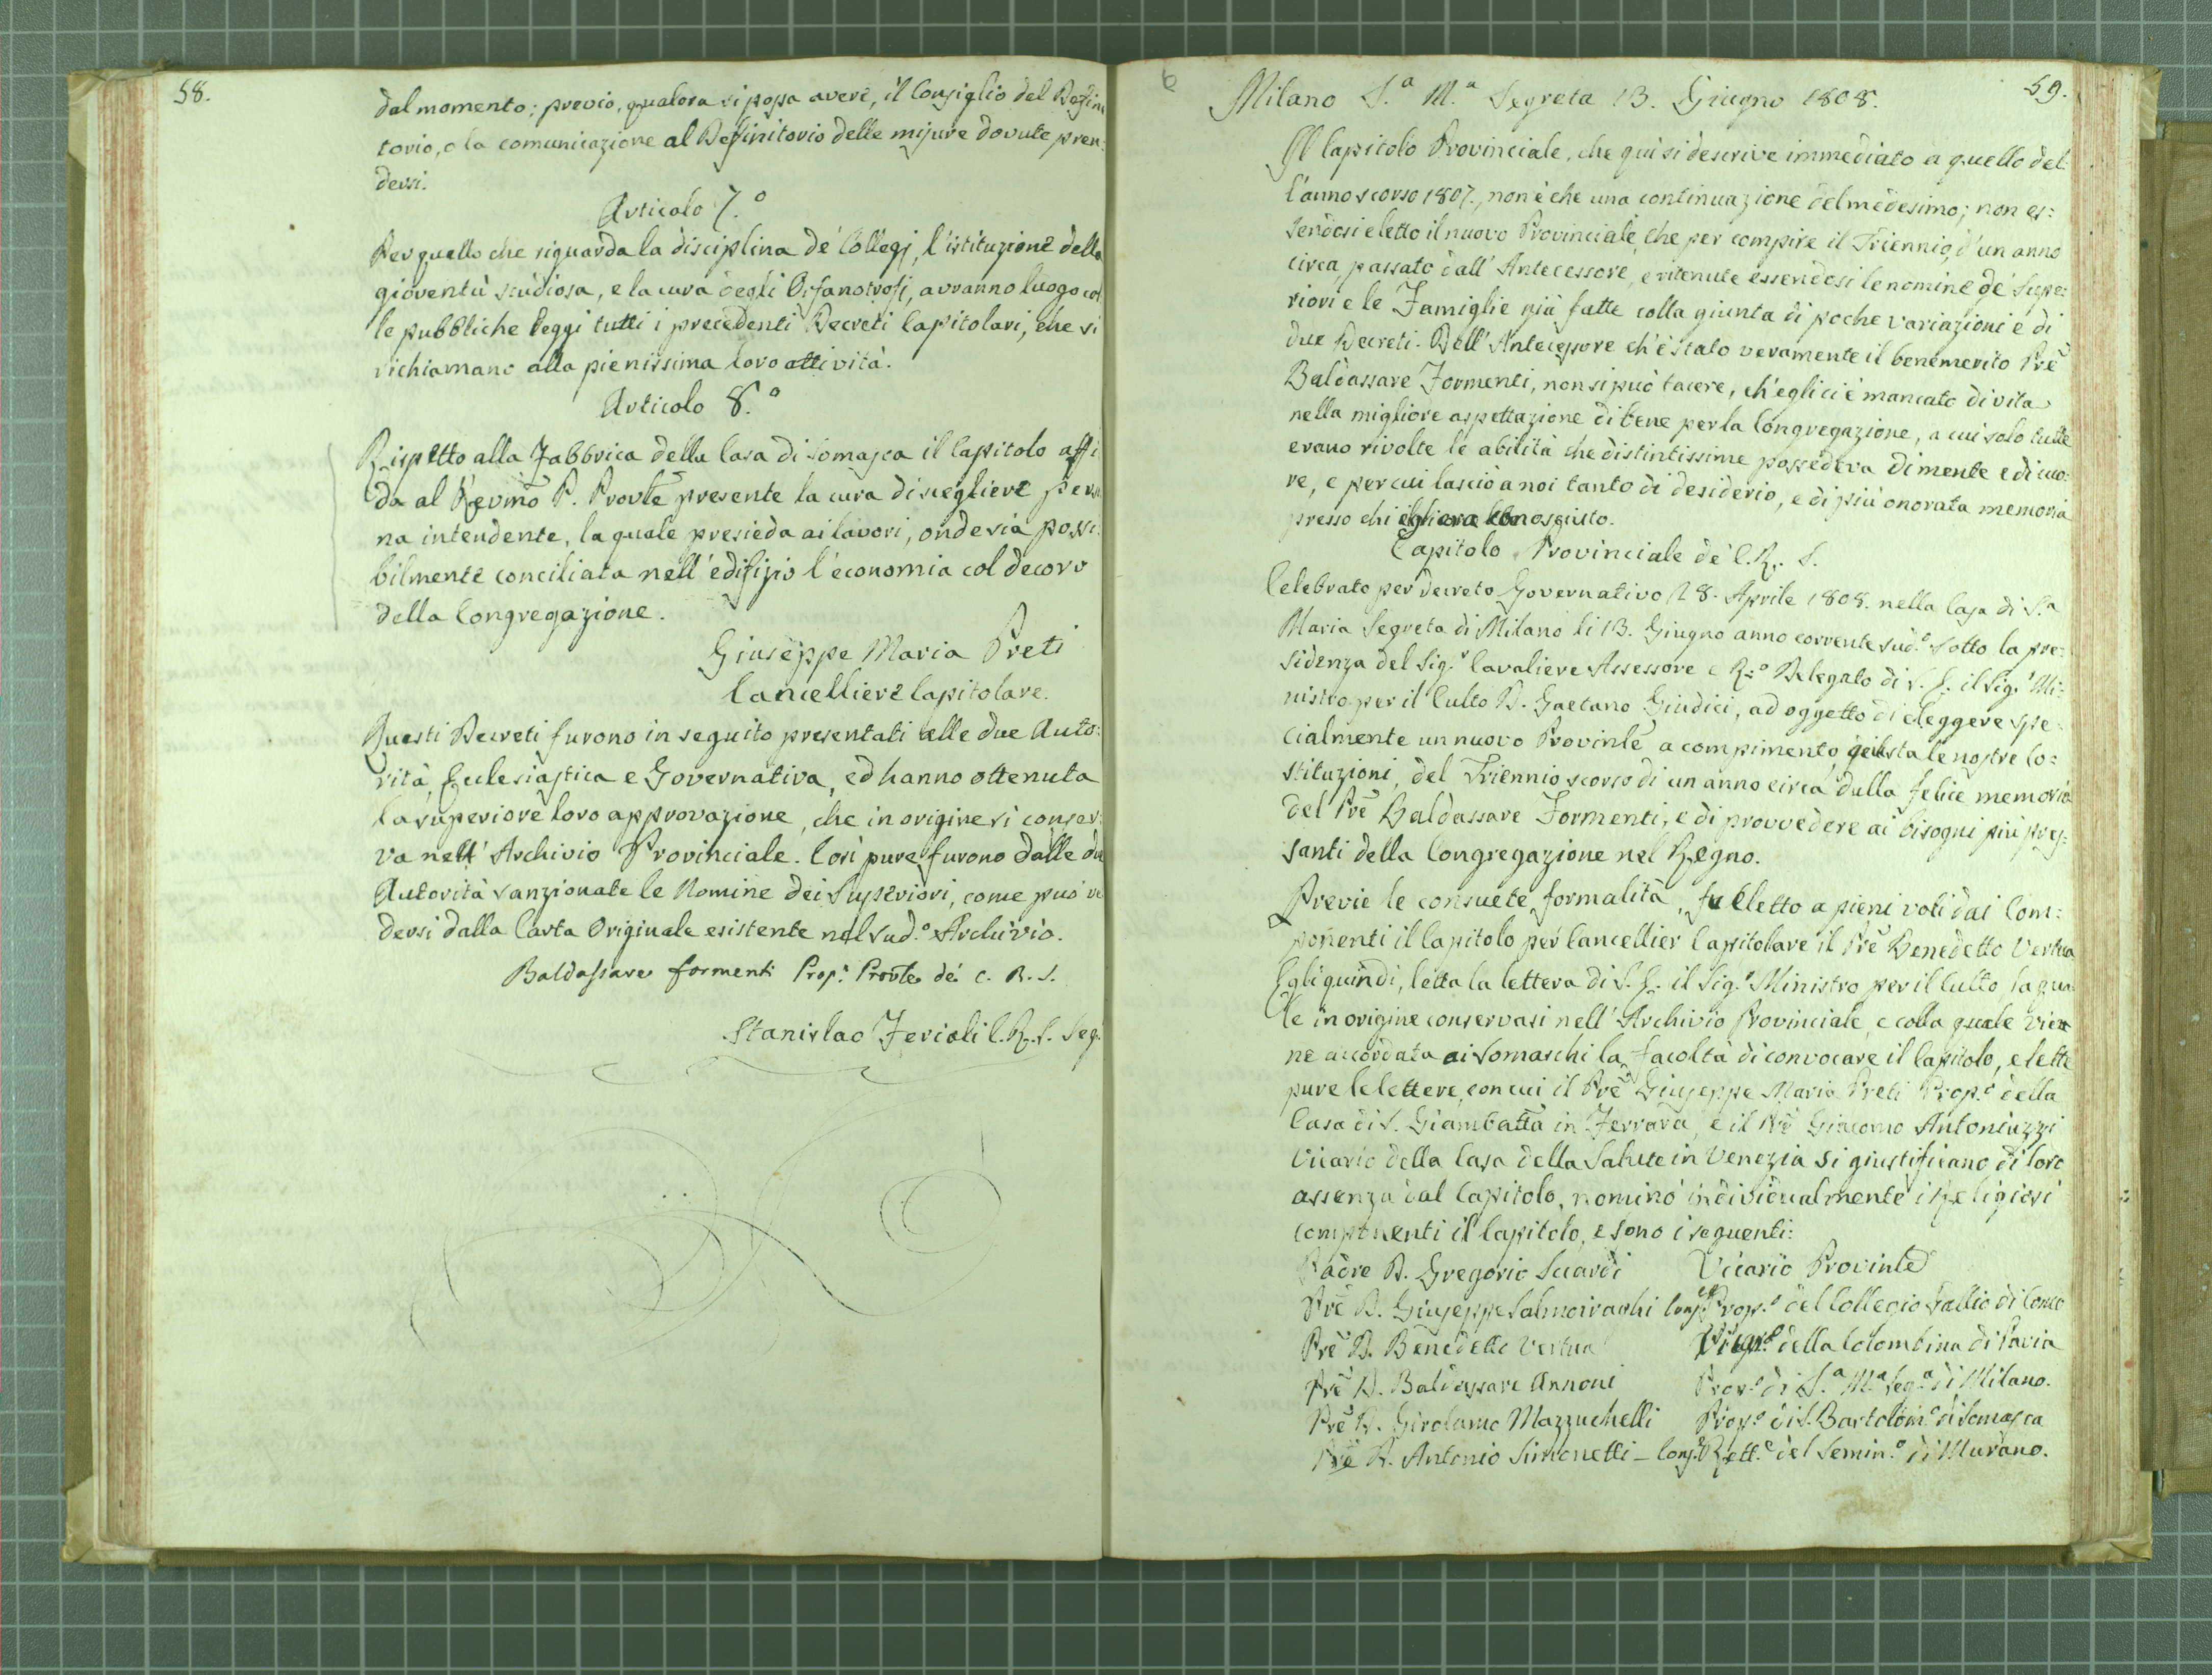 58.
dal momento; previo, qualora si possa avere, il Consiglio del Defini
torio, o la comunicazione al Definitorio delle misure dovute pren:
dersi.
Articolo 7.º
Per quello che riguarda la disciplina de' Collegj, l'istituzione della
gioventù studiosa, e la cura degli Orfanotrofj, avranno luogo col
le pubbliche Leggi tutti i precedenti Decreti Capitolari, che si
richiamano alla pienissima loro attività.
Articolo 8.º
Rispetto alla Fabbrica della Casa di Somasca il Capitolo affi
da al Revmo P. Provle presente la cura di scegliere perso
na intendente, la quale presieda ai lavori, onde sia possi
bilmente conciliata nell'edifizio l'economia col decoro
della Congregazione.
Giuseppe Maria Preti
Cancelliere Capitolare.
Questi Decreti furono in seguito presentati alle due Auto:
rità, Ecclesiastica e Governativa, ed hanno ottenuta
la superiore loro approvazione, che in origine si conser:
va nell'Archivio Provinciale. Così pure furono dalle due
Autorità sanzionate le Nomine dei Superiori, come può ve
dersi dalla Carta Originale esistente nel sud.º Archivio.
Baldassare Formenti Prop.º Provle de' C. R. S.
Stanislao Ferioli C. R. S. Seg.
6
59.
Milano S.ª M.ª Segreta 13. Giugno 1808.
Il Capitolo Provinciale, che quì si descrive immediato a quello del:
l'anno scorso 1807., non è che una continuazione del medesimo; non es:
sendosi eletto il nuovo Provinciale, che per compire il Triennio, d'un anno
circa passato dall'Antecessore, e ritenute essendosi le nomine de' Supe:
riori e le Famiglie già fatte colla giunta di poche variazioni e di
due Decreti. Dell'Antecessore ch'è stato veramente il benemerito Pre
Baldassare Formenti, non si può tacere, ch'egli ci è mancato di vita
nella migliore aspettazione di bene per la Congregazione, a cui solo tutte
erano rivolte le abilità che distintissime possedeva di mente e di cuo:
re, e per cui lasciò a noi tanto di desiderio, e di più onorata memoria
presso chi egli era conosciuto.
Capitolo Provinciale de' C. R. S.
Celebrato per decreto Governativo 28. Aprile 1808. nella Casa di S.ª
Maria Segreta di Milano li 13. Giugno anno corrente sud.º sotto la pre:
sidenza del Sig.r Cavaliere Assessore e R.º Delegato di S. E. il Sig.r Mi:
nistro per il Culto D. Gaetano Giudici, ad oggetto di eleggere spe:
cialmente un nuovo Provinle a compimento, giusta le nostre Co:
stituzioni, del Triennio scorso di un anno circa dalla felice memoria
del Pre Baldassare Formenti, e di provvedere ai bisogni più pres:
santi della Congregazione nel Regno.
Previe le consuete formalità, fu eletto a pieni voti dai Com:
ponenti il Capitolo per Cancellier Capitolare il Pre Benedetto Vertua
Egli quindi, letta la lettera di S. E. il Sig.r Ministro per il Culto, la qua
le in origine conservasi nell'Archivio Provinciale, e colla quale vien
ne accordata ai Somaschi la facoltà di convocare il Capitolo, e lette
pure le lettere, con cui il Pre Giuseppe Maria Preti Prop.º della
Casa di S. Giambatta in Ferrara, e il Pre Giacomo Antoniuzzi
Vicario della Casa della Salute in Venezia si giustificano di loro
assenza dal Capitolo, nominò individualmente i Religiosi
componenti il Capitolo, e sono i seguenti:
Padre D. Gregorio Suardi Vicario Provinle
Pre D. Giuseppe Salmoiraghi Cons.e Prop.º del Collegio Gallio di Como
Pre D. Benedetto Vertua della Colombina di Pavia
Pre D. Baldassare Annoni Prop.º di S.ª M.ª Seg.ª di Milano.
Pre D. Girolamo Mazzuchelli Prop.º di S. Bartolom.º di Somasca
Pre D. Antonio Simonetti - Cons.e Rett.e del Semin.º di Murano.